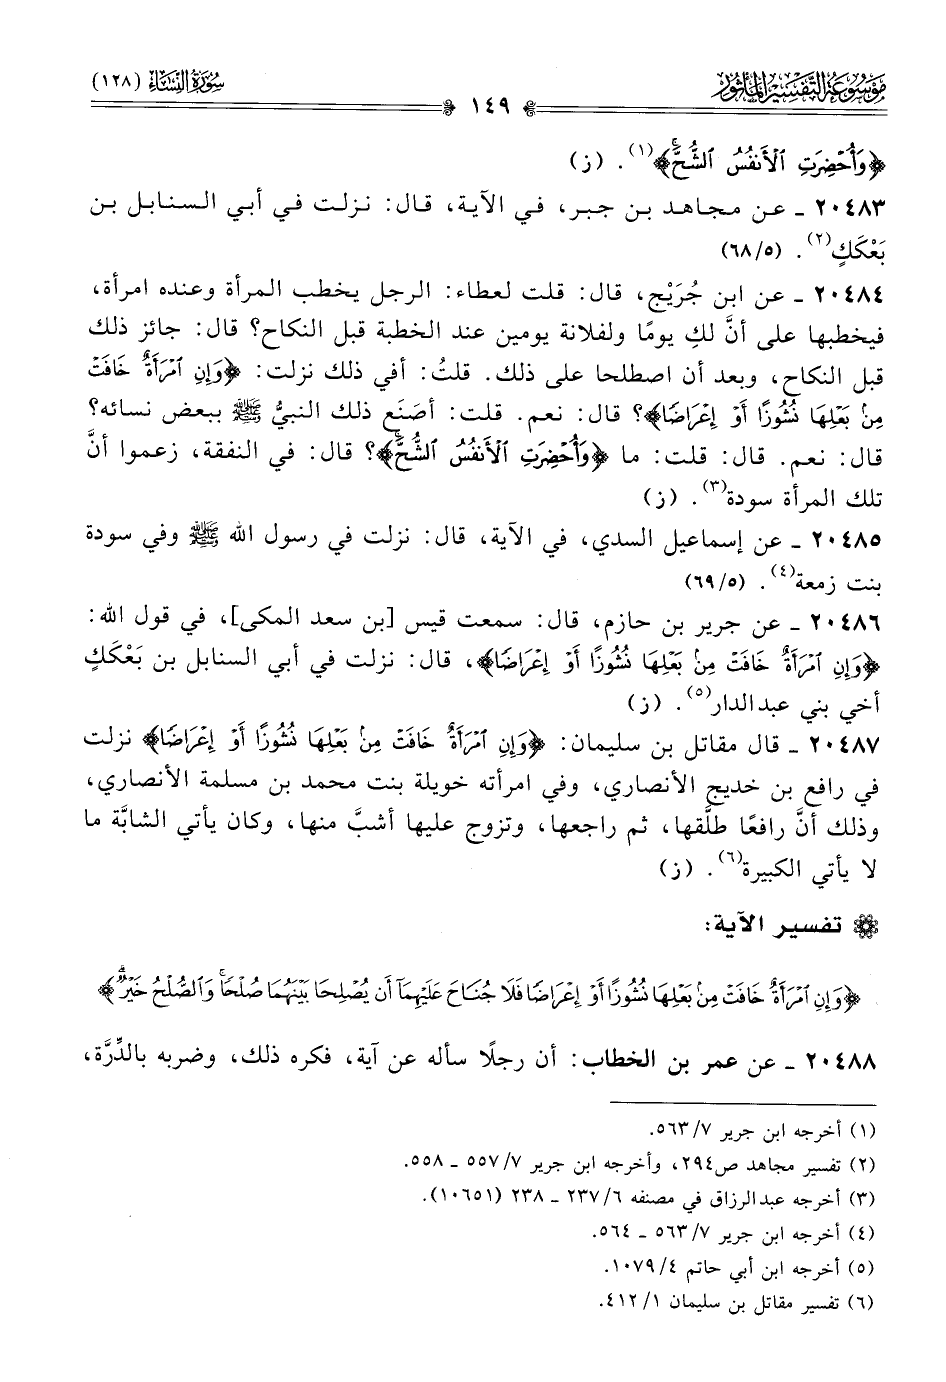 موسوعة التفسير المأثور
سورة النساء (١٢٨)
١٤٩
﴿وَأُحْضِرَتِ ٱلْأَنفُسُ ٱلشُّحَّ﴾(١). (ز)
٢٠٤٨٣ ـ عن مجاهد بن جبر، في الآية، قال: نزلت في أبي السنابل بن
بَعْكَكٍ(٢). (٦٨/٥)
٢٠٤٨٤ ـ عن ابن جُرَيْج، قال: قلت لعطاء: الرجل يخطب المرأة وعنده امرأة،
فيخطبها على أنَّ لكِ يومًا ولفلانة يومين عند الخطبة قبل النكاح؟ قال: جائز ذلك
قبل النكاح، وبعد أن اصطلحا على ذلك. قلتُ: أفي ذلك نزلت: ﴿وَإِنِ ٱمْرَأَةٌ خَافَتْ
مِنۢ بَعْلِهَا نُشُوزًا أَوْ إِعْرَاضًا﴾؟ قال: نعم. قلت: أصَنَع ذلك النبيُّ ﷺ ببعض نسائه؟
قال: نعم. قال: قلت: ما ﴿وَأُحْضِرَتِ ٱلْأَنفُسُ ٱلشُّحَّ﴾؟ قال: في النفقة، زعموا أنَّ
تلك المرأة سودة(٣). (ز)
٢٠٤٨٥ ـ عن إسماعيل السدي، في الآية، قال: نزلت في رسول الله ﷺ وفي سودة
بنت زمعة(٤). (٦٩/٥)
٢٠٤٨٦ ـ عن جرير بن حازم، قال: سمعت قيس [بن سعد المكى]، في قول الله:
﴿وَإِنِ ٱمْرَأَةٌ خَافَتْ مِنۢ بَعْلِهَا نُشُوزًا أَوْ إِعْرَاضًا﴾، قال: نزلت في أبي السنابل بن بَعْكَكٍ
أخي بني عبدالدار(٥). (ز)
٢٠٤٨٧ ـ قال مقاتل بن سليمان: ﴿وَإِنِ ٱمْرَأَةٌ خَافَتْ مِنۢ بَعْلِهَا نُشُوزًا أَوْ إِعْرَاضًا﴾ نزلت
في رافع بن خديج الأنصاري، وفي امرأته خويلة بنت محمد بن مسلمة الأنصاري،
وذلك أنَّ رافعًا طلَّقها، ثم راجعها، وتزوج عليها أشبَّ منها، وكان يأتي الشابَّة ما
لا يأتي الكبيرة(٦). (ز)
تفسير الآية:
﴿وَإِنِ ٱمْرَأَةٌ خَافَتْ مِنۢ بَعْلِهَا نُشُوزًا أَوْ إِعْرَاضًا فَلَا جُنَاحَ عَلَيْهِمَآ أَن يُصْلِحَا بَيْنَهُمَا صُلْحًا ۚ وَٱلصُّلْحُ خَيْرٌ ۗ﴾
٢٠٤٨٨ ـ عن عمر بن الخطاب: أن رجلًا سأله عن آية، فكره ذلك، وضربه بالدِّرَّة،
(١) أخرجه ابن جرير ٥٦٣/٧.
(٢) تفسير مجاهد ص٢٩٤، وأخرجه ابن جرير ٥٥٧/٧ ـ ٥٥٨.
(٣) أخرجه عبدالرزاق في مصنفه ٢٣٧/٦ ـ ٢٣٨ (١٠٦٥١).
(٤) أخرجه ابن جرير ٥٦٣/٧ ـ ٥٦٤.
(٥) أخرجه ابن أبي حاتم ١٠٧٩/٤.
(٦) تفسير مقاتل بن سليمان ٤١٢/١.